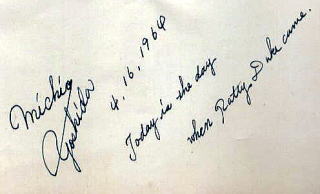 Michio
Yoshida
4, 16, 1964
Today is the day
when Patty Duke came.